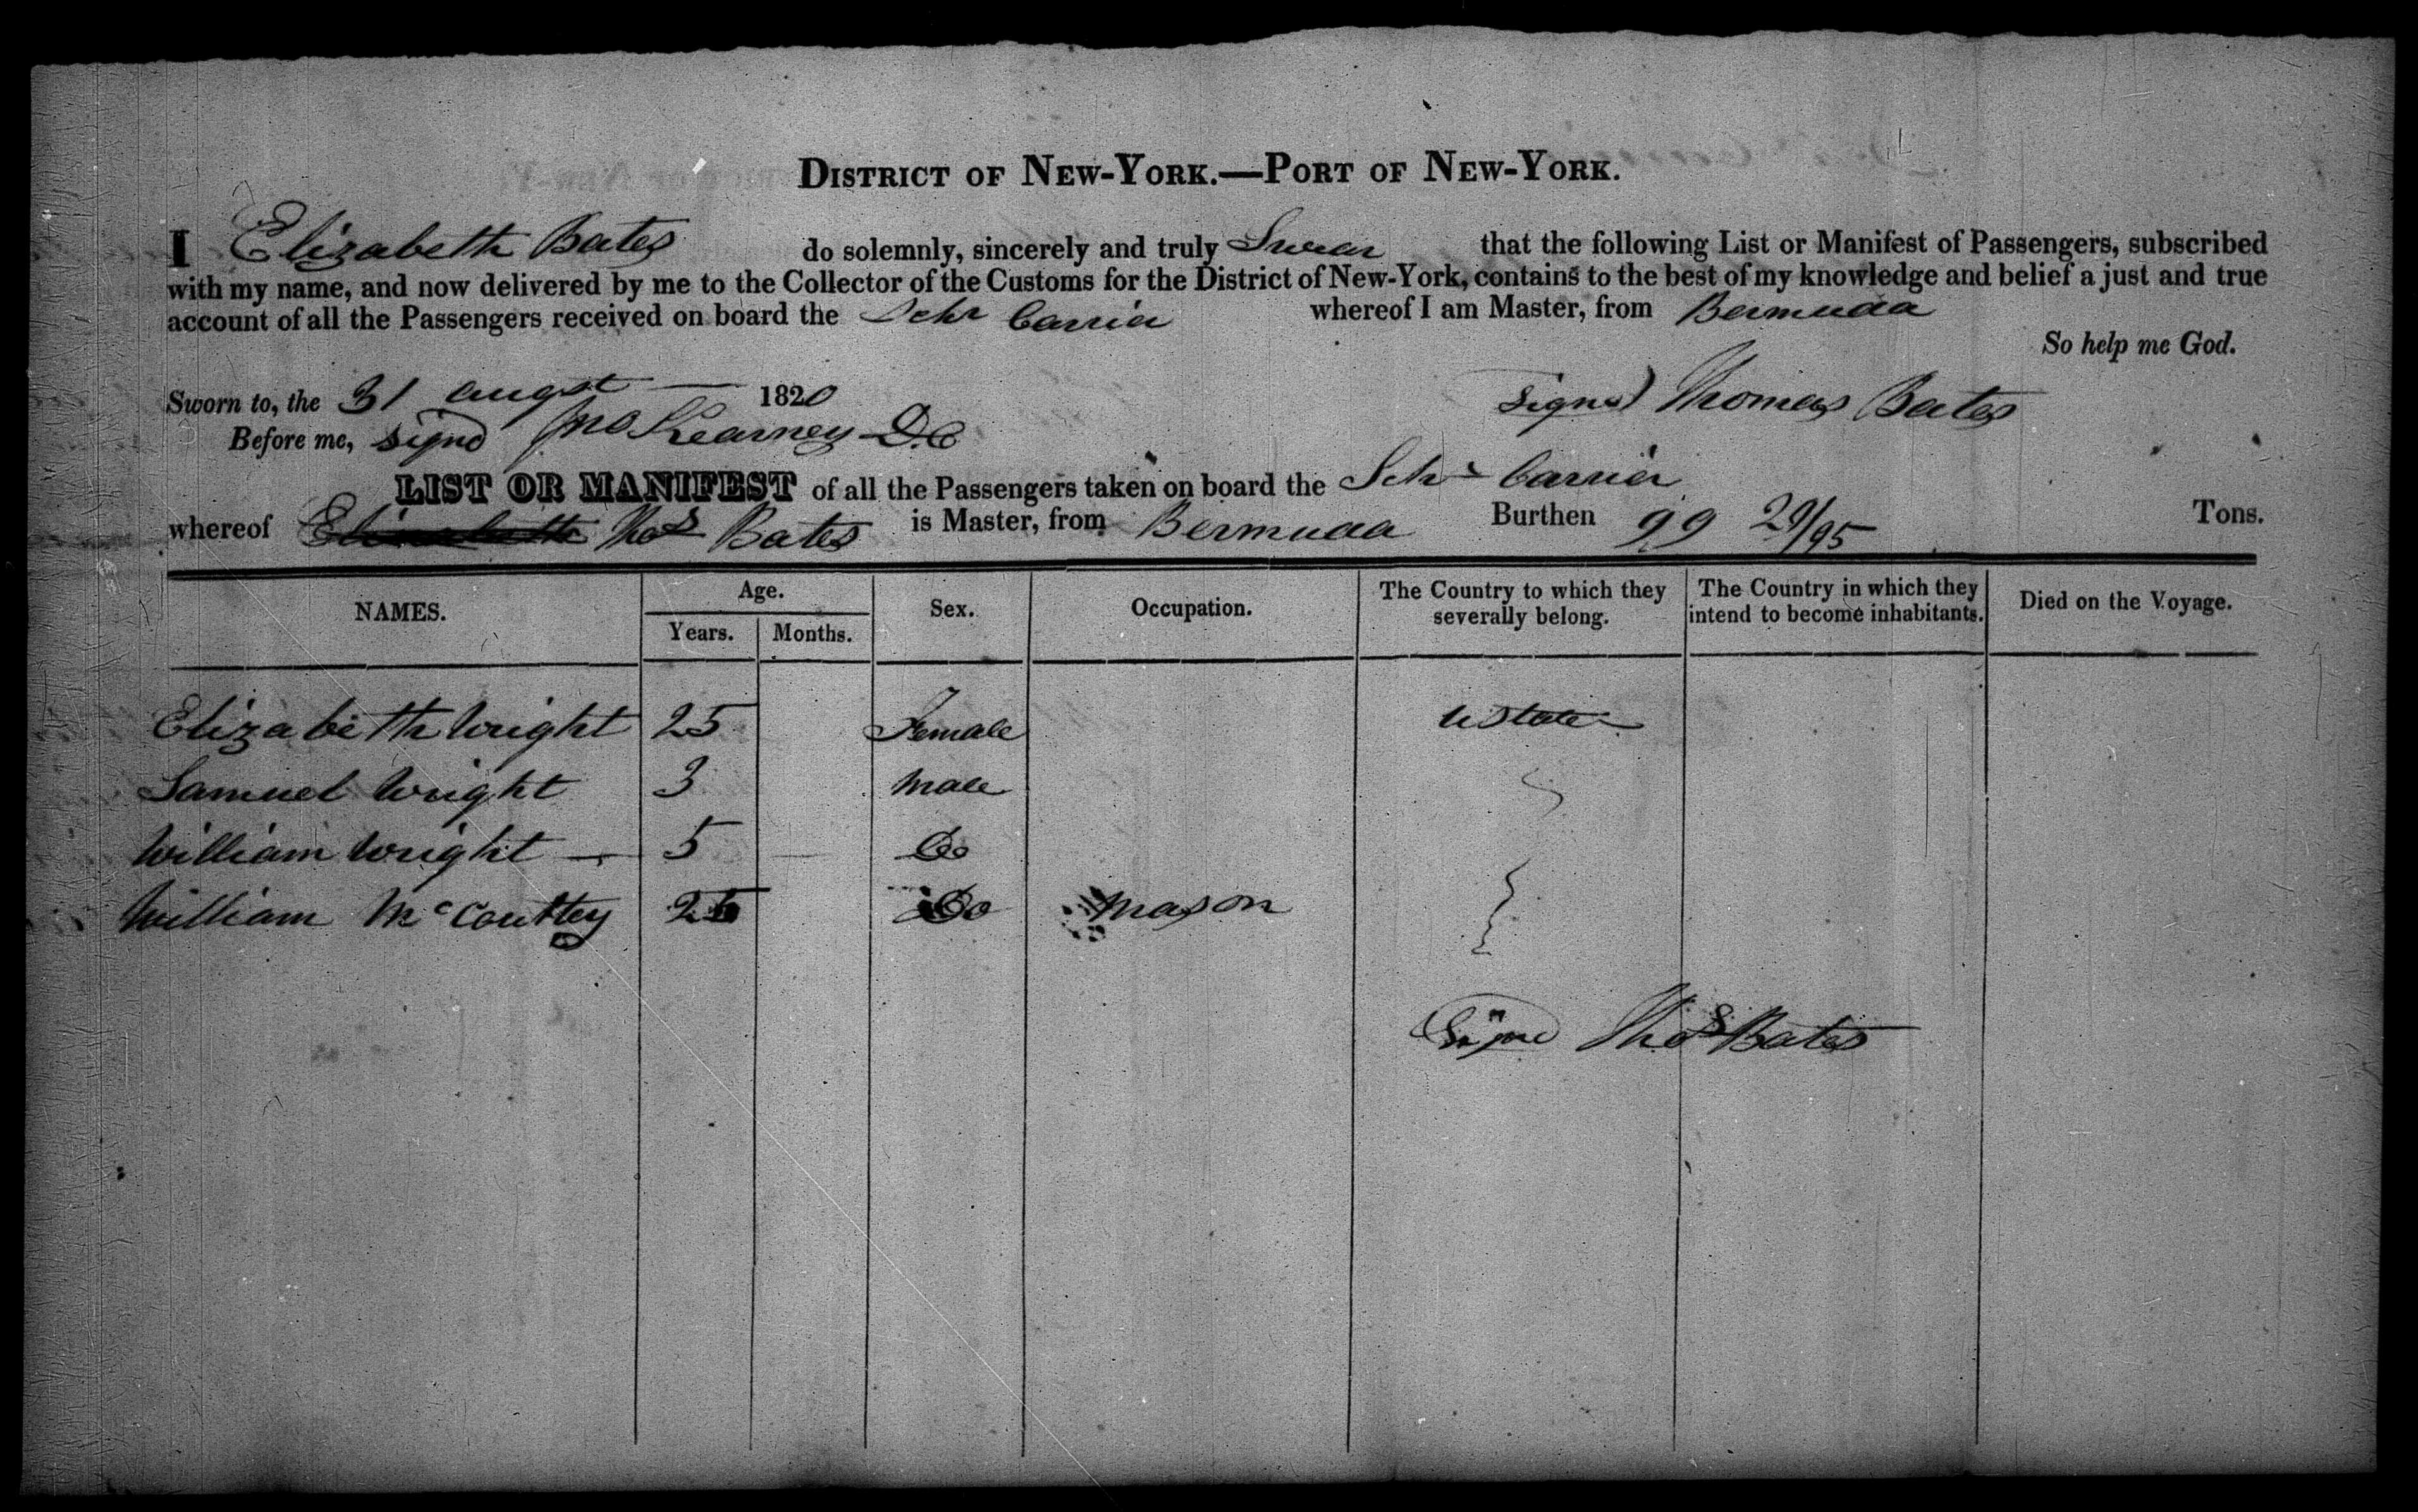 DISTRICT OF NEW-YORK.—PORT OF NEW-YORK.
I Elizabeth Bates do solemnly, sincerely and truly Swear that the following List or Manifest of Passengers, subscribed
with my name, and now delivered by me to the Collector of the Customs for the District of New-York, contains to the best of my knowledge and belief a just and true
account of all the Passengers received on board the Schr Carrier whereof I am Master, from Bermuda
So help me God.
Sworn to, the 31 augst 1820 Signed Thomas Bates
Before me, signd Jno Kearney D.C
LIST OR MANIFEST of all the Passengers taken on board the Schr Carrier
whereof Elizabeth Thos Bates is Master, from Bermuda Burthen 99 29/95 Tons.
NAMES. Age. Years. Months. Sex. Occupation. The Country to which they severally belong. The Country in which they intend to become inhabitants. Died on the Voyage.
Elizabeth Wright 25 Female UStates
Samuel Wright 3 Male
William Wright — 5 Do
William Mc 25 Do Mason
Signd Thos Bates